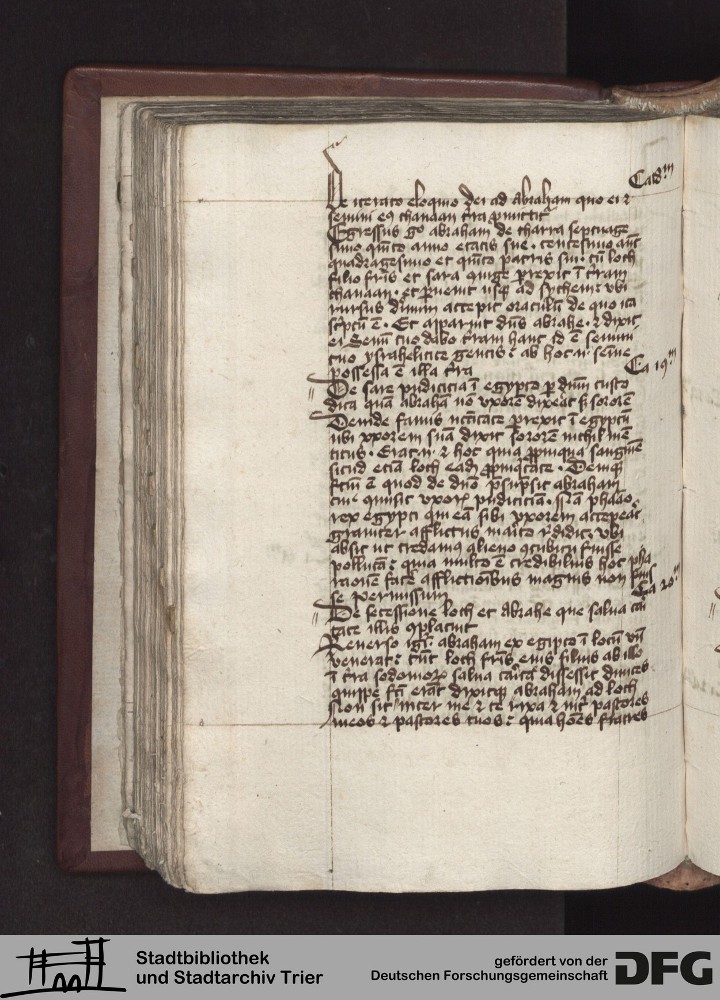 Ca 18m
De iterato eloquio dei ad abraham quo ei et
semini eius chanaan terra promittitur
Egressus ergo abraham de charra septuage
simo quinto anno etatis sue · centesimo autem
quadragesimo et quinto patris sui · cum loth
filio fratris et sara coniuge perrexit in terram
chanaan · et peruenit usque ad sychem: ubi
rursus diuinum accepit oraculum de quo ita
scriptum est · Et apparuit dominus abrahe · et dixit
ei Semini tuo dabo terram hanc id est semini
tuo israhelitice gentis: ab hoc enim semine
possessa est illa terra
Ca 19m
De sare pudicicia in egypto per dominum custo
dita quam abraham non uxorem dixerat sed sororem
Deinde famis necessitate perrexit in egyptum
ubi uxorem suam dixit sororem nichil men
titus · Erat enim et hoc quia propinqua sanguine
sicud etiam loth eadem propinquitate · Denique
factum est quod de domino presumpsit abraham
cui commisit uxoris pudiciciam · Nam pharao
rex egypti qui eam sibi uxorem acceperat
grauiter afflictus marito reddidit ubi
absit ut credamus alieno concubitu fuisse
pollutam: quia multo est credibilius hoc pha
raonem facere afflictionibus magnis non fuis
se permissum
Ca 20m
De secessione loth et abrahe que salua cari
tate illis complacuit
Reuerso igitur abraham ex egipto in locum unde
uenerat: tunc loth fratris eius filius ab illo
in terram sodomorum salua caritate discessit diuites
quippe facti erant dixitque abraham ad loth
Non sit inter me et te rixa et inter pastores
meos et pastores tuos: quia homines fratres
Stadtbibliothek
und Stadtarchiv Trier
gefördert von der
Deutschen Forschungsgemeinschaft
DFG